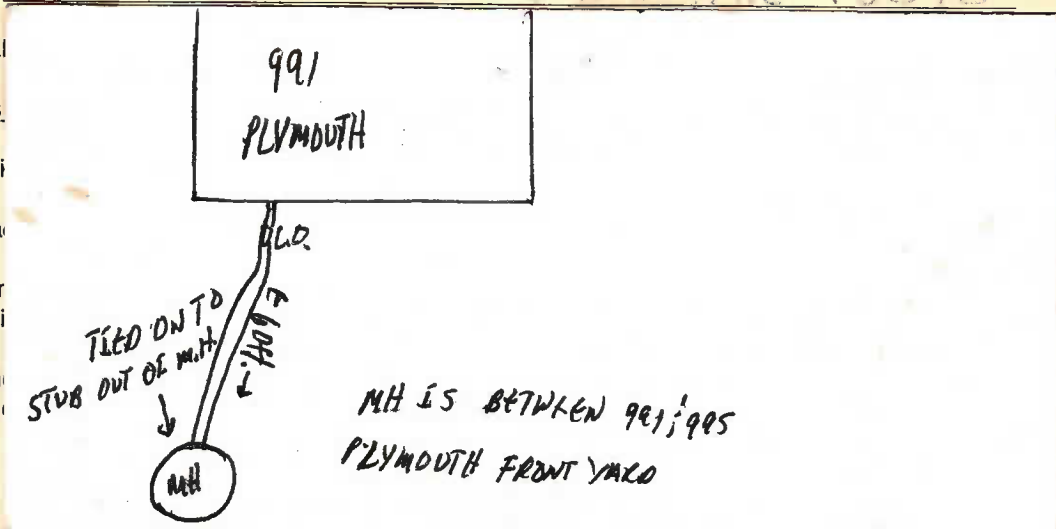 991
PLYMOUTH
C.O.
TIED ON TO
STUB OUT OF M.H.
60ft.
MH
MH IS BETWEEN 991 & 995
PLYMOUTH FRONT YARD